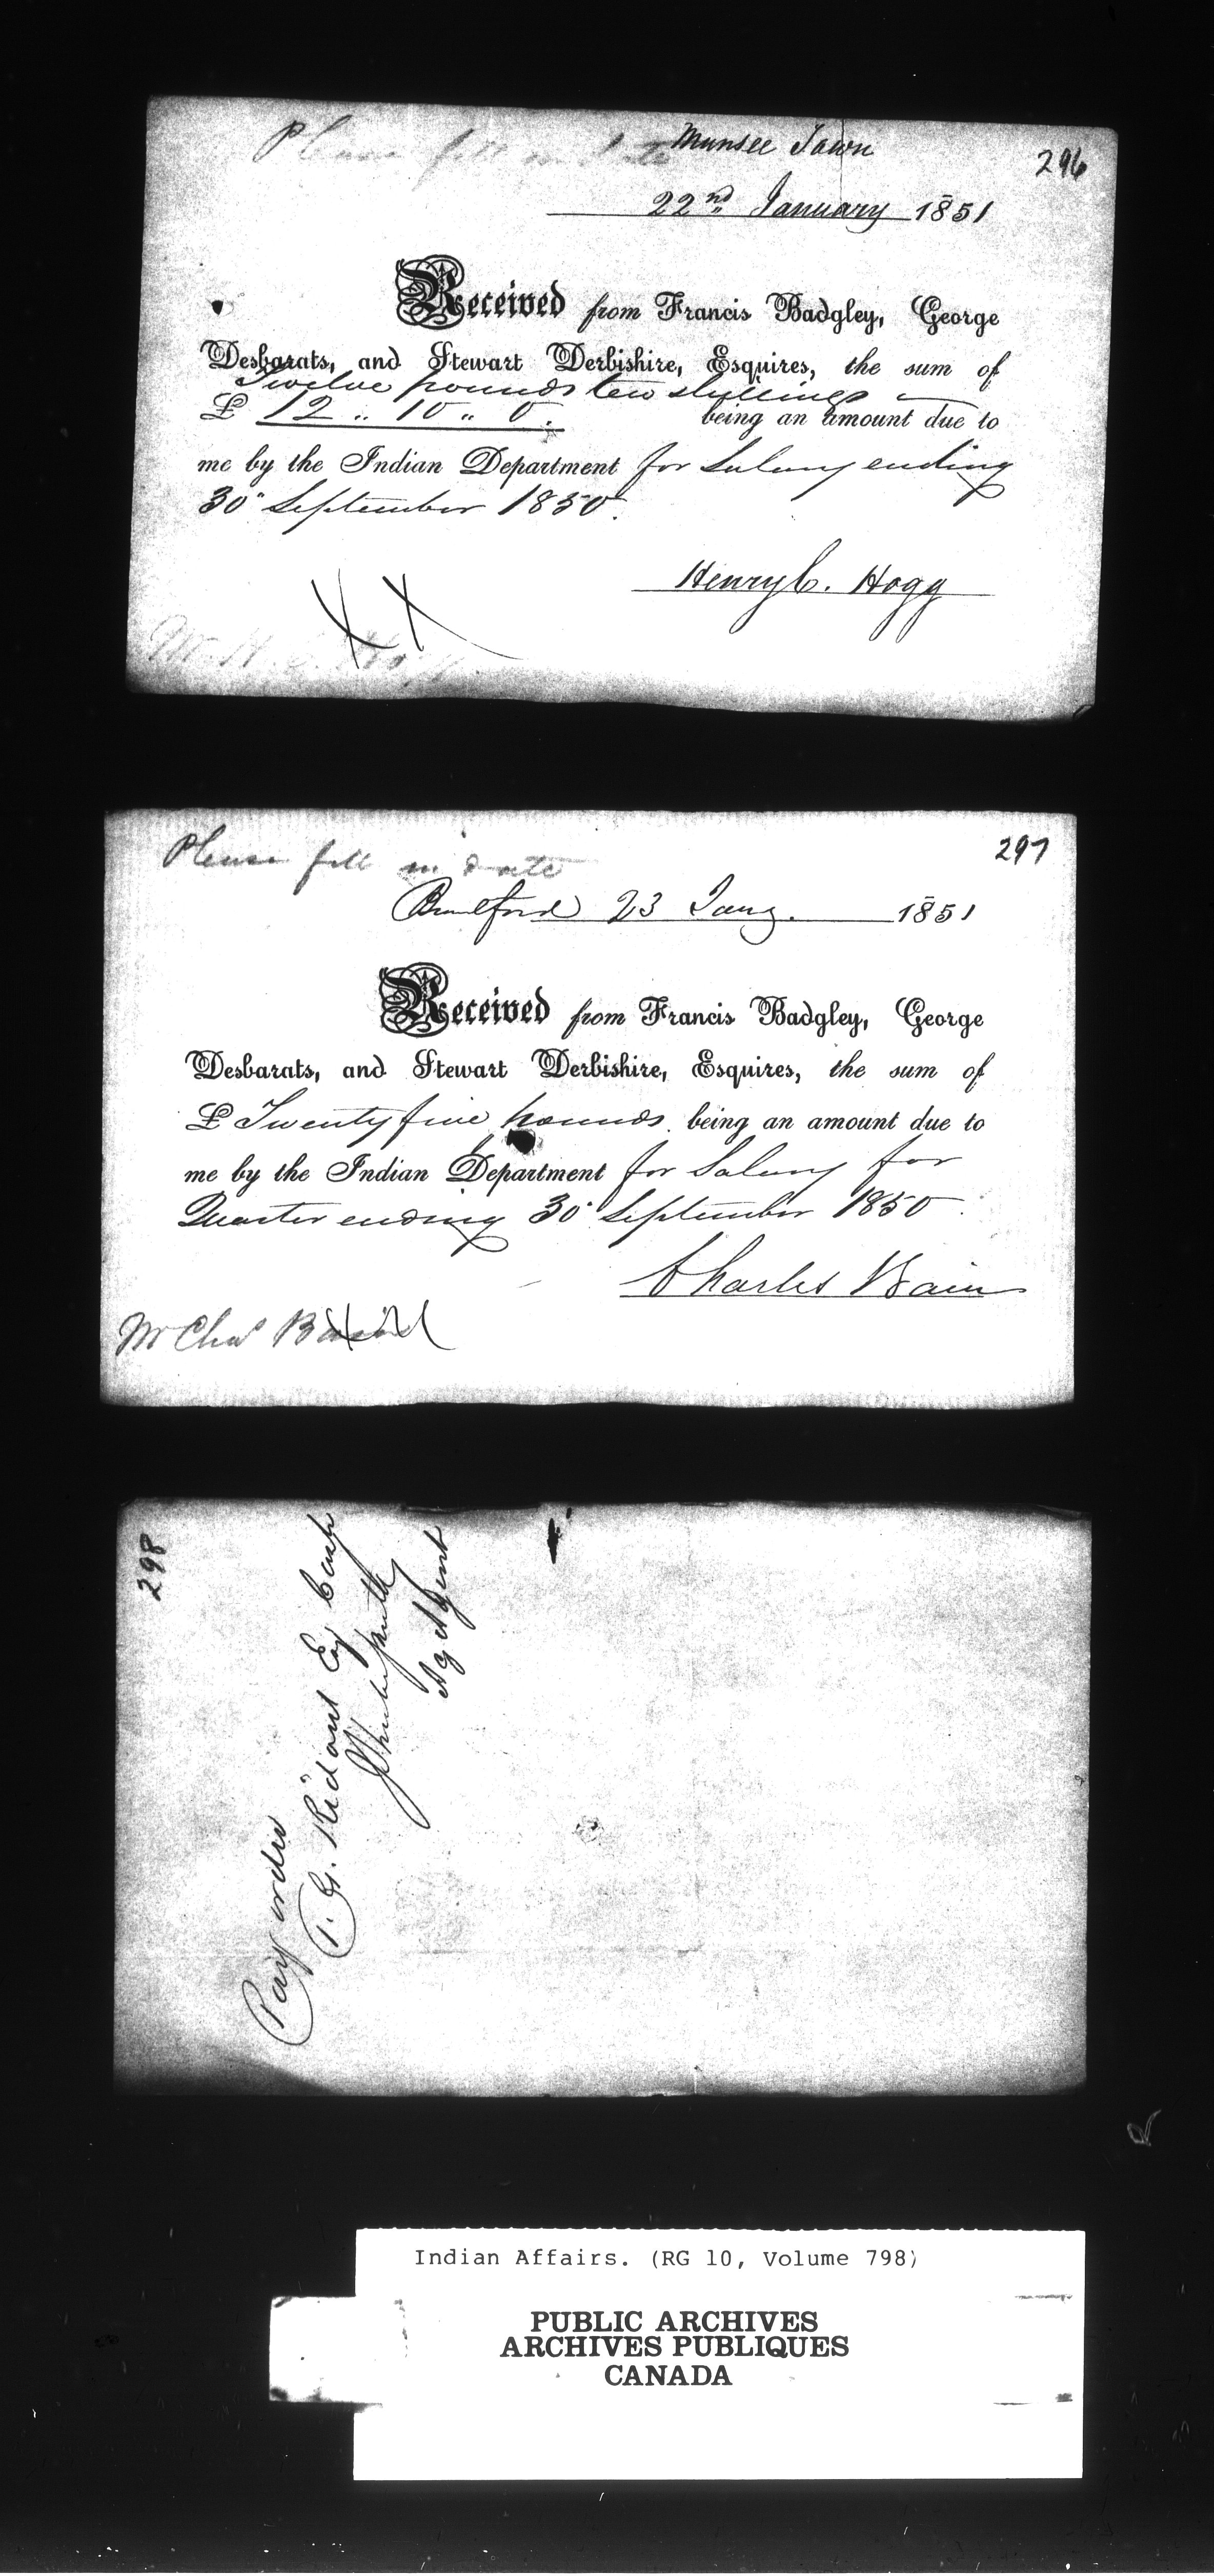 Please fill in date
Munsee Town
296
22nd January 1851
Received from Francis Badgley, George
Desbarats, and Stewart Derbishire, Esquires, the sum of
Twelve pounds ten shillings
£ 12 .. 10 .. 0. being an amount due to
me by the Indian Department for Salary ending
30 September 1850.
Henry C. Hogg
Mr H. C. Hogg
Please fill in date
297
Brantford 23 Jany. 1851
Received from Francis Badgley, George
Desbarats, and Stewart Derbishire, Esquires, the sum of
£ Twenty five pounds being an amount due to
me by the Indian Department for Salary for
Quarter ending 30 September 1850.
Charles Bain
Mr Chas Bain
298
Pay order
T. G. Ridout Esq Cash
Ag Agent
Indian Affairs. (RG 10, Volume 798)
PUBLIC ARCHIVES
ARCHIVES PUBLIQUES
CANADA